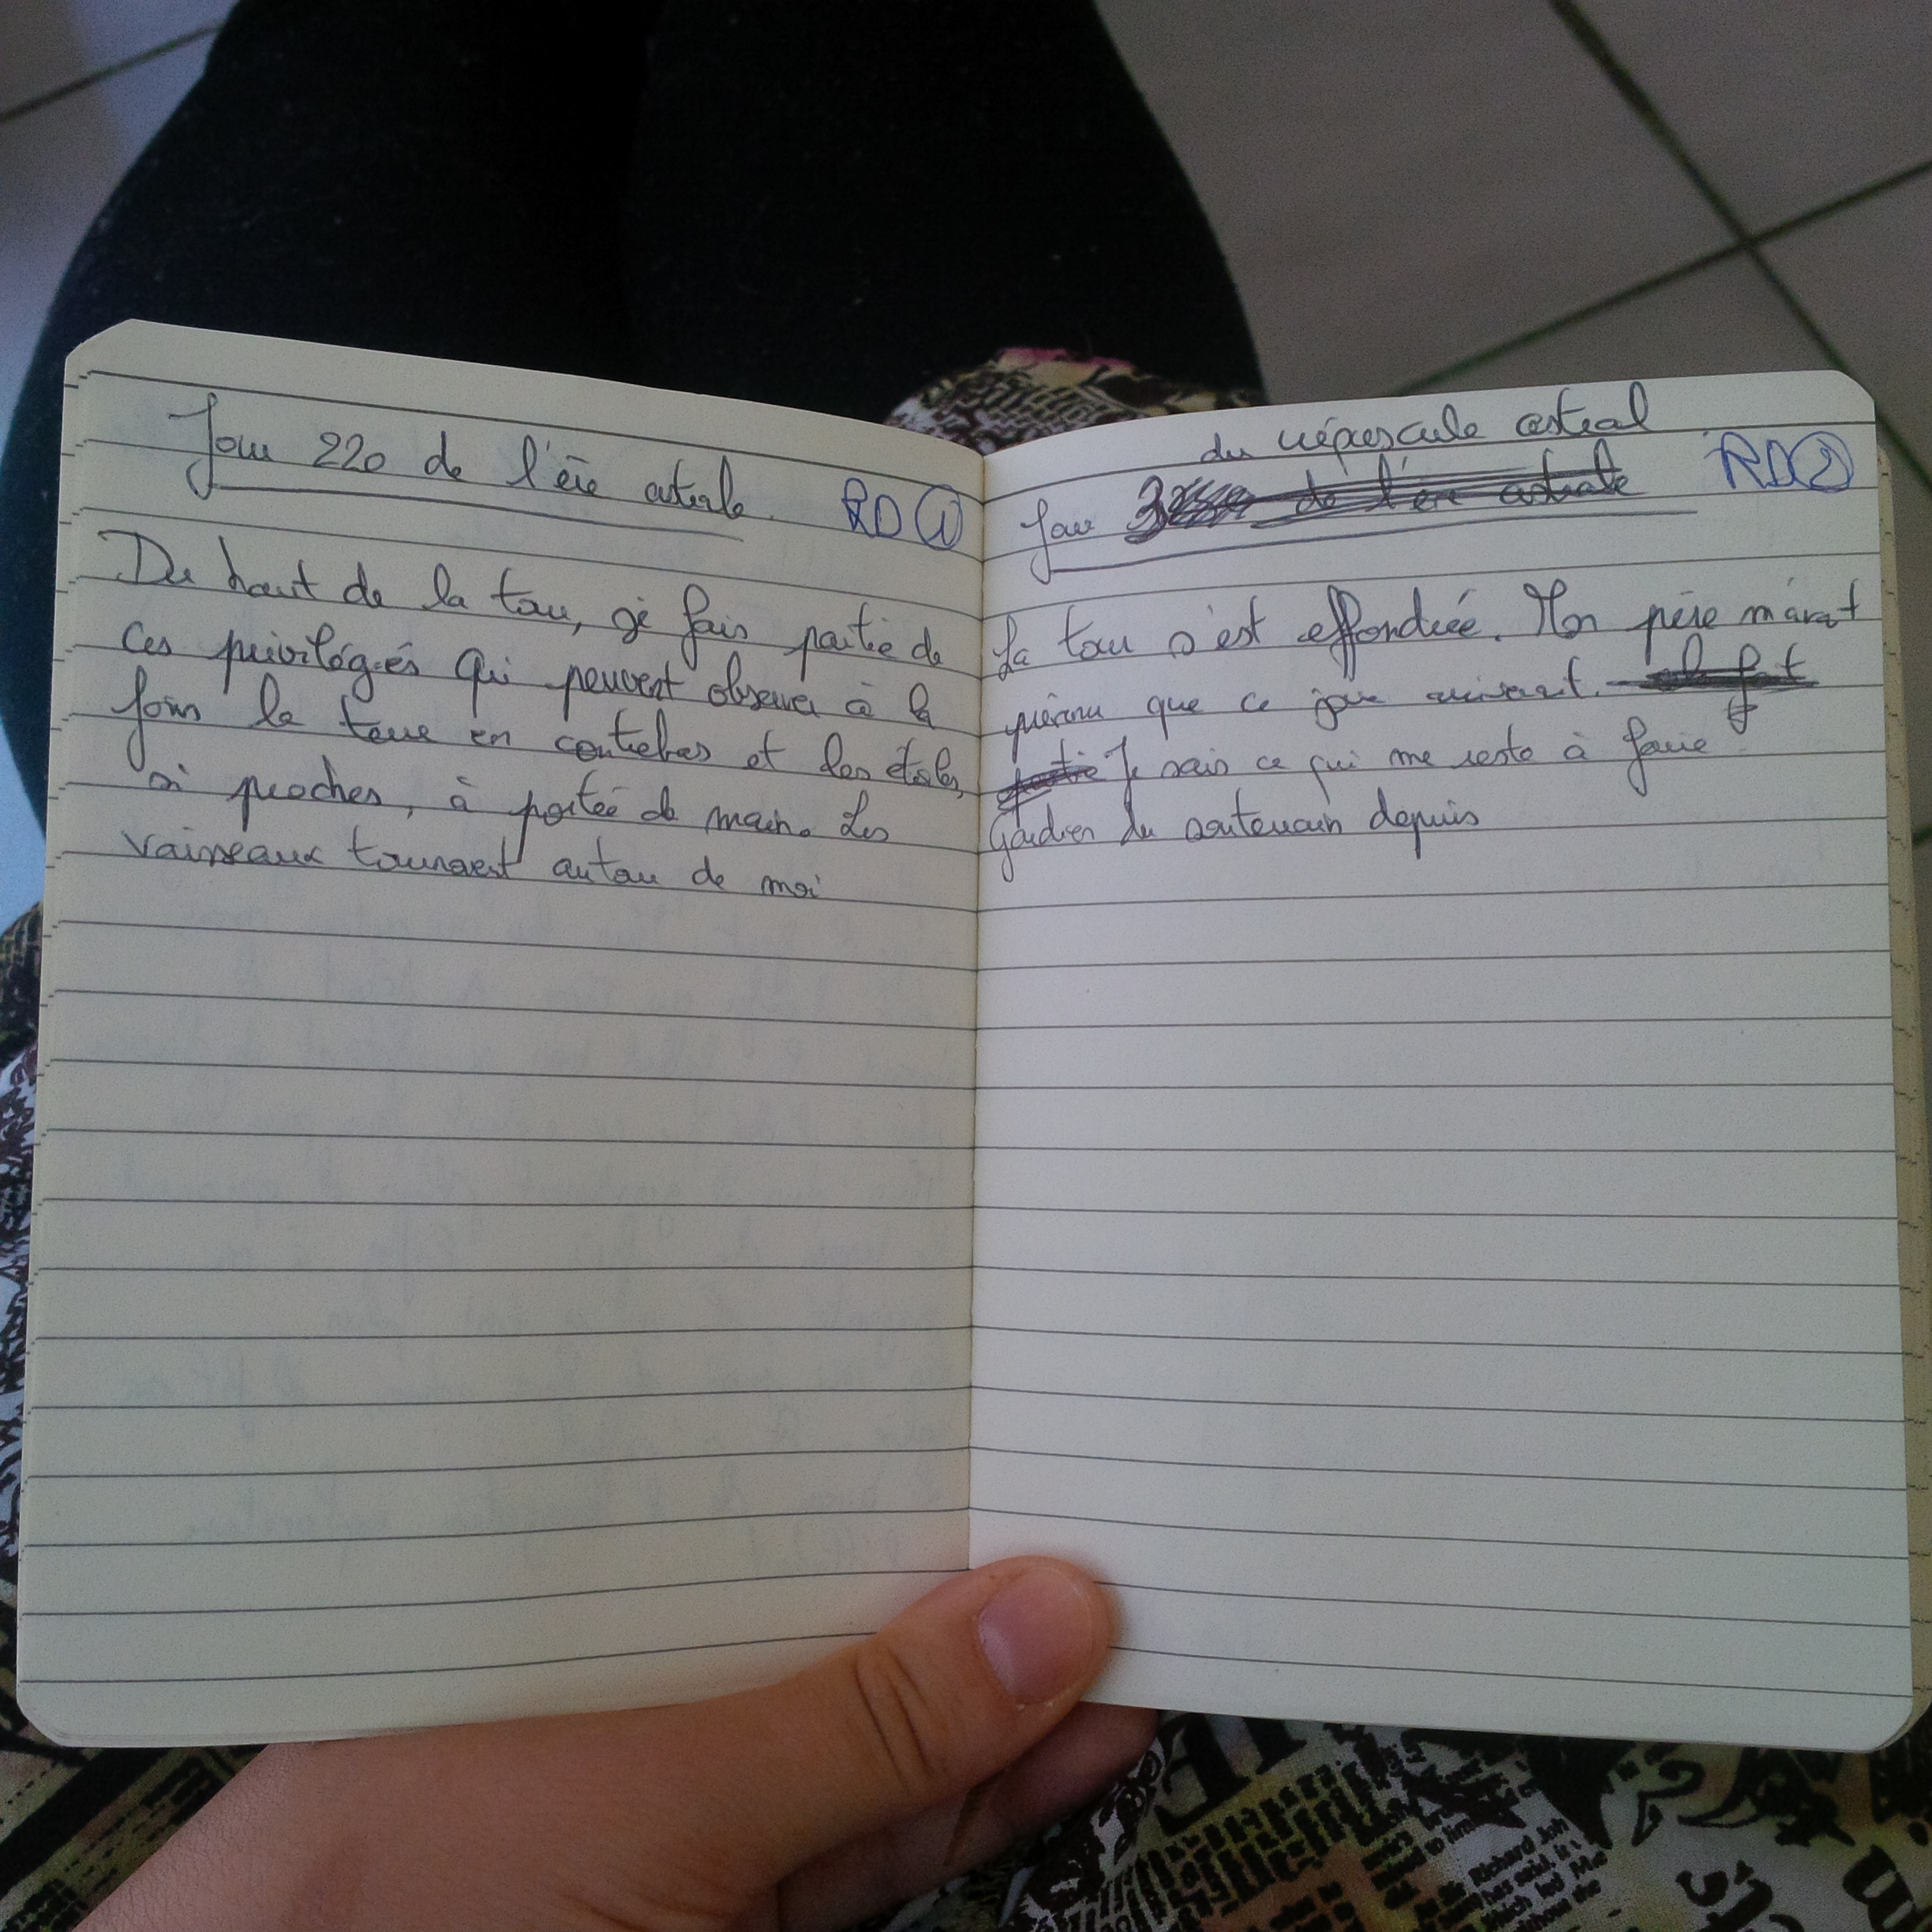 Jour 220 de l'ère astrale. RD ①
Du haut de la tour, je fais partie de
ces privilégiés qui peuvent observer à la
fois la terre en contrebas et les étoiles,
si proches, à portée de main. Les
vaisseaux tournent autour de moi
du crépuscule astral
Jour 3 de l'ère astrale RD ②
La tour s'est effondrée. Mon père m'avait
prévenu que ce jour arriverait. Il fait
partie Je sais ce qui me reste à faire
Gardien du souterrain depuis